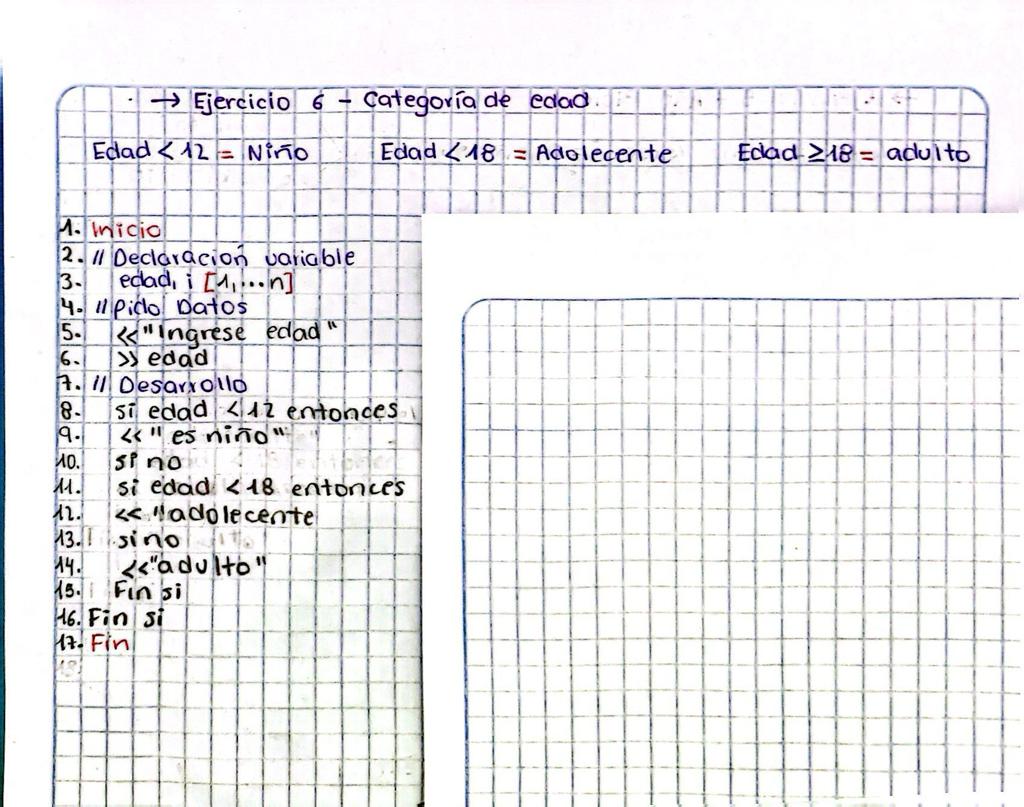 → Ejercicio 6 - Categoría de edad.
Edad < 12 = Niño Edad < 18 = Adolecente Edad ≥ 18 = adulto
1. Inicio
2. // Declaración variable
3. edad, i [1, ... n]
4. // Pido Datos
5. << "Ingrese edad"
6. >> edad
7. // Desarrollo
8. si edad < 12 entonces
9. << " es niño"
10. si no
11. si edad < 18 entonces
12. << "adolecente
13. sino
14. << "adulto"
15. Fin si
16. Fin si
17. Fin
18.